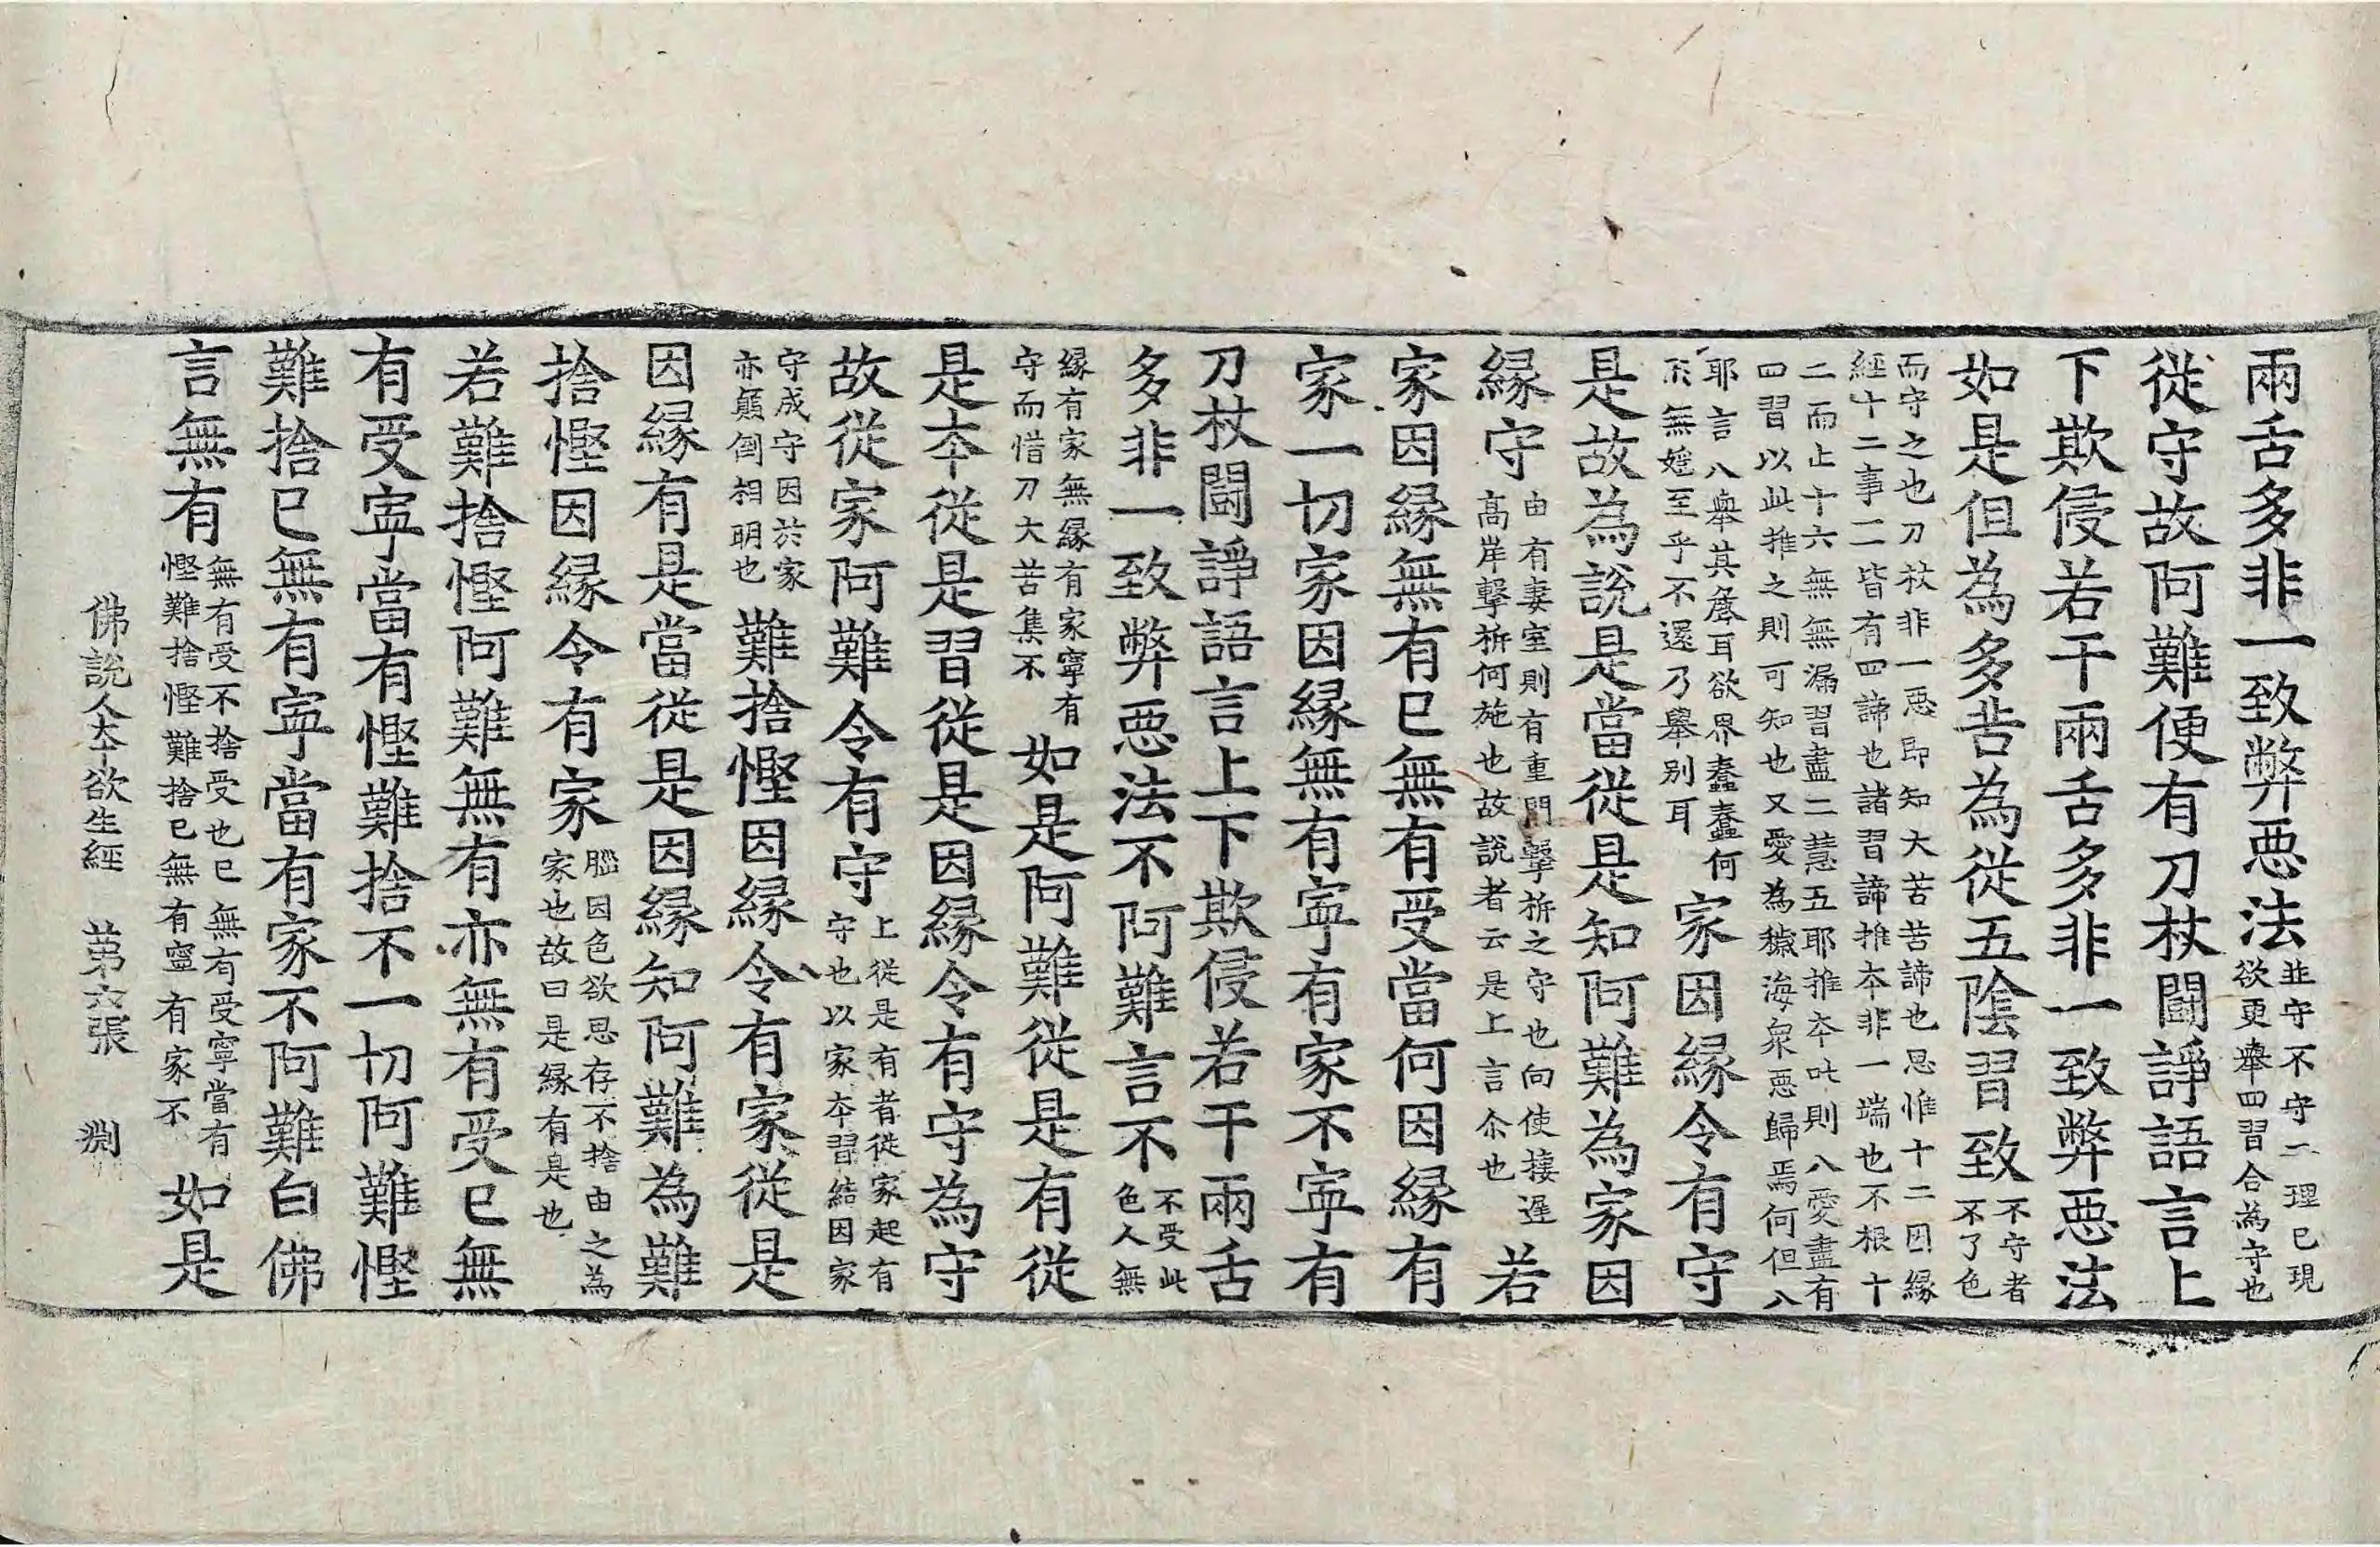 兩舌多非一致弊惡法並守不守二理已現欲更舉四習合為守也
從守故阿難便有刀杖鬪諍語言上
下欺侵若干兩舌多非一致弊惡法
如是但為多苦為從五陰習致不守者不了色
而守之也刀杖非一惡即知大苦苦諦也思惟十二因緣
經十二事二皆有四諦也諸習諦推本非一端也不根十
二而止十六無無漏習盡二慧五耶推本吒則八愛盡有
四習以此推之則可知也又愛為穢海衆惡歸焉何但八
耶言八舉其麁耳欲界蠢蠢何無婬至乎不還乃舉別耳家因緣令有守
是故為說是當從是知阿難為家因
緣守由有妻室則有重門擊柝之守也向使捿遲高岸擊柝何施也故說者云是上言尒也若
家因緣無有已無有受當何因緣有
家一切家因緣無有寧有家不寧有
刀杖鬪諍語言上下欺侵若干兩舌
多非一致弊惡法不阿難言不不受此色人無
緣有家無緣有家寧有守而惜刀大苦集不如是阿難從是有從
是本從是習從是因緣令有守為守
故從家阿難令有守上從是有者從家起有守也以家本習結因家
守成守因於家亦顛倒相明也難捨慳因緣令有家從是
因緣有是當從是因緣知阿難為難
捨慳因緣令有家腦因色欲思存不捨由之為家也故曰是緣有是也
若難捨慳阿難無有亦無有受已無
有受寧當有慳難捨不一切阿難慳
難捨已無有寧當有家不阿難白佛
言無有無有受不捨受也已無有受寧當有慳難捨慳難捨已無有寧有家不如是
佛說人本欲生經 第六張 淵